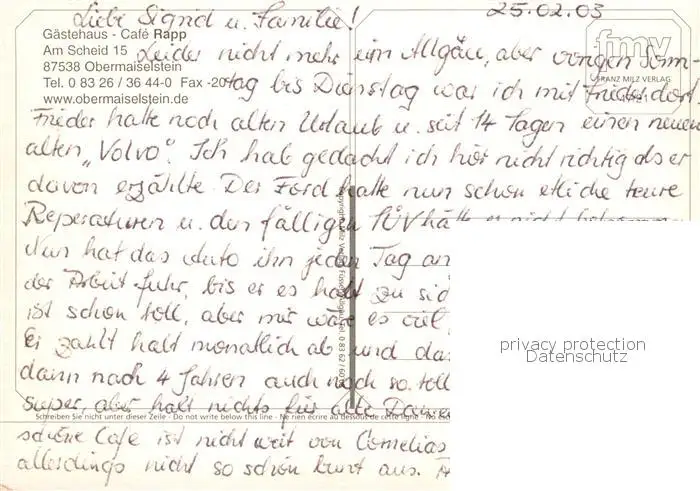 Liebe Sigrid u. Familie! 25.02.03
Gästehaus - Café Rapp
Am Scheid 15
87538 Obermaiselstein
Tel. 0 83 26 / 36 44-0 Fax -20
www.obermaiselstein.de
fmv
FRANZ MILZ VERLAG
Leider nicht mehr im Allgäu, aber vorigen Sonn-
tag bis Dienstag war ich mit Frieder dort
Frieder hatte noch alten Urlaub u. seit 14 Tagen einen neuen
alten „Volvo“. Ich hab gedacht ich hör nicht richtig als er
davon erzählte. Der Ford hatte nun schon etliche teure
Reperaturen u. den fälligen TÜV hätte er nicht bekommen
Nun hat das Auto ihn jeden Tag an
der Arbeit fuhr, bis er es halt zu sich
ist schon toll, aber mir wäre es viel
Er zahlt halt monatlich ab und da
dann nach 4 Jahren auch noch so toll
super, aber halt nichts für alte Damen
Schreiben Sie nicht unter dieser Zeile - Do not write below this line - Ne rien écrire au dessous de cette ligne
schöne Cafe ist nicht weit von Cornelias
allerdings nicht so schön bunt aus.
privacy protection
Datenschutz